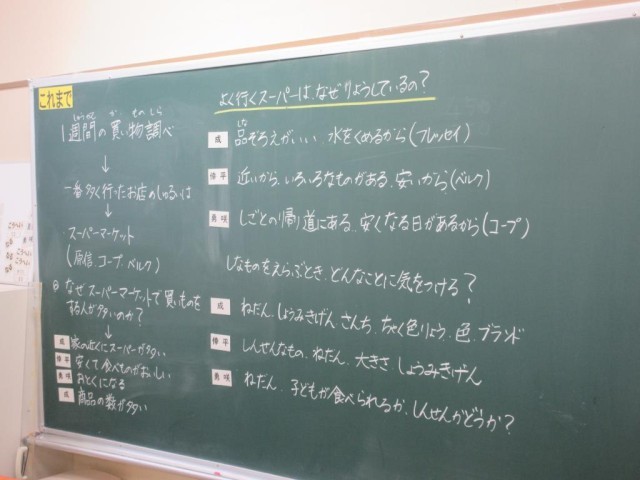 これまで
しゅうかん か ものしら
1週間の買い物調べ
↓
一番多く行ったお店のしゅるいは
↓
スーパーマーケット
(原信、コープ、ベルク)
◎なぜスーパーマーケットで買いものを
する人が多いのか?
↓
成 家の近くにスーパーが多い
修平 安くて食べものがおいしい
勇咲 おとくになる
成 商品の数が多い
よく行くスーパーは、なぜりようしているの?
しな
成 品ぞろえがいい、水をくめるから(フレッセイ)
修平 近いから、いろいろなものがある、安いから(ベルク)
勇咲 しごとの帰り道にある、安くなる日があるから(コープ)
しなものをえらぶとき、どんなことに気をつける?
成 ねだん、しょうみきげん、さんち、ちゃく色りょう、色、ブランド
修平 しんせんなもの、ねだん、大きさ、しょうみきげん
勇咲 ねだん、子どもが食べられるか、しんせんかどうか?